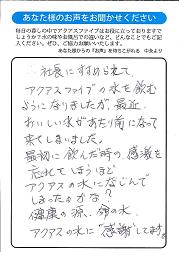 あなたの声をお聞かせください
毎日の暮しの中でアクアスファイブはお役に立っておりますで
しょうか？水の味やお風呂での違いなど、どんなことでもご記
入ください。ぜひ、ご協力お願いいたします。
あなた様からの「お声」を待ちこがれる 中央より
社長にすすめられて、
アクアスファイブの水を飲む
ようになりましたが、最近、
おいしい水があたり前になって
来てしまいました。
最初に飲んだ時の感激を
忘れてしまうほど
アクアスの水になじんで
しまったかな？
健康の源、命の水
アクアスの水に"感謝"してます。